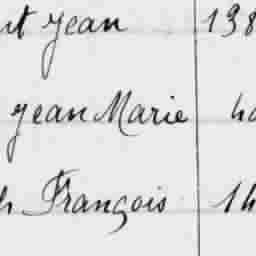 Jean 138
Jean Marie 40
François 14